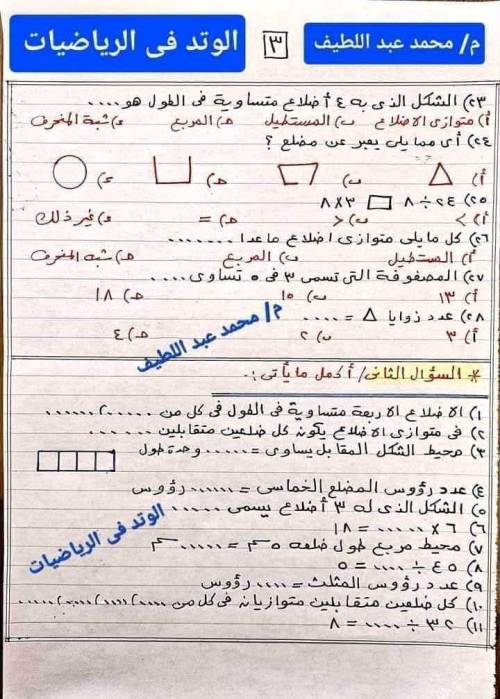 م/ محمد عبد اللطيف ٣ الوتد فى الرياضيات
٢٣) الشكل الذى به ٤ أضلاع متساوية فى الطول هو ....
أ) متوازى الاضلاع ب) المستطيل جـ) المربع د) شبة المنحرف
٢٤) أى مما يلى يعبر عن مضلع ؟
أ) ب) جـ) د)
٢٥) ٢٤ ÷ ٨ □ ٣ × ٨
أ) > ب) < جـ) = د) غير ذلك
٢٦) كل ما يلى متوازى اضلاع ما عدا .......
أ) المستطيل ب) المربع جـ) شبه المنحرف
٢٧) المصفوفة التى تسمى ٣ فى ٥ تساوى ....
أ) ١٣ ب) ١٥ جـ) ١٨
٢٨) عدد زوايا △ = ....
أ) ٣ ب) ٢ جـ) ٤
م/ محمد عبد اللطيف
* السؤال الثانى / أكمل ما يأتى :.
١) الاضلاع الاربعة متساوية فى الطول فى كل من ......،......
٢) فى متوازى الاضلاع يكون كل ضلعين متقابلين ......
٣) محيط الشكل المقابل يساوى = ..... وحدة طول
٤) عدد رؤوس المضلع الخماسى = ...... رؤوس
٥) الشكل الذى له ٣ أضلاع يسمى .....
٦) ٦ × ...... = ١٨
٧) محيط مربع طول ضلعه ٥ سم = ..... سم
٨) ٤٥ ÷ .... = ٥
٩) عدد رؤوس المثلث = .... رؤوس
١٠) كل ضلعين متقابلين متوازيان فى كل من ....،....،....،....
١١) ٣٢ ÷ .... = ٨
الوتد فى الرياضيات